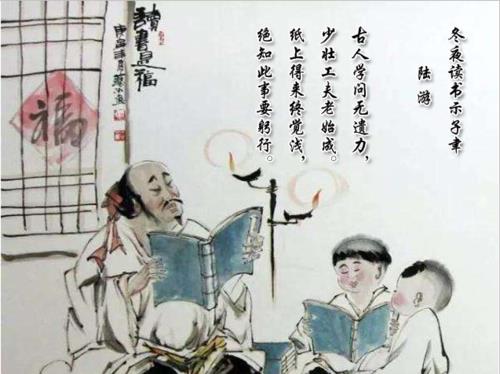 冬夜读书示子聿
陆 游
古人学问无遗力，
少壮工夫老始成。
纸上得来终觉浅，
绝知此事要躬行。
讀書是福
福